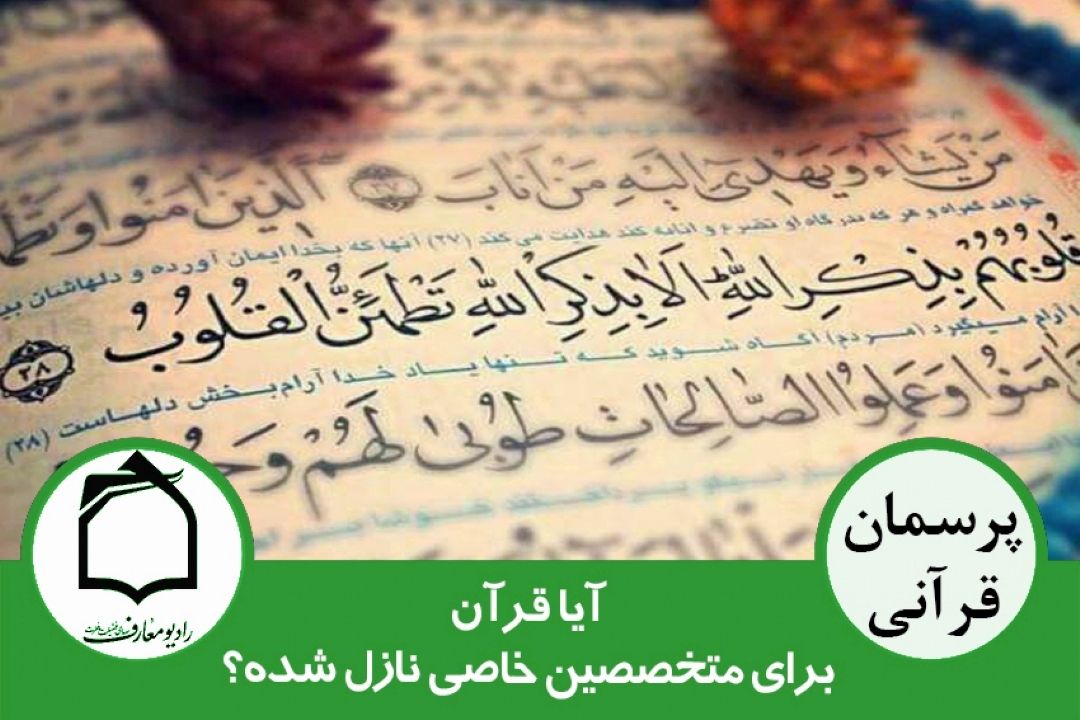 مَنْ يَشَاءُ وَيَهْدِي إِلَيْهِ مَنْ أَنَابَ ٢٧ الَّذِينَ آمَنُوا وَتَطْمَ
خواهد گمراه و هر که بدرگاه او تضرع و انابه کند هدایت می کند (۲۷) آنها که بخدا ایمان آورده و دلهاشان بی
قُلُوبُهُمْ بِذِكْرِ اللَّهِ أَلَا بِذِكْرِ اللَّهِ تَطْمَئِنُّ الْقُلُوبُ ٢٨
آرام میگیرد (مردم) آگاه شوید که تنها یاد خدا آرام‌بخش دلهاست (۲۸)
آمَنُوا وَعَمِلُوا الصَّالِحَاتِ طُوبَىٰ لَهُمْ وَحُ
پرسمان
قرآنی
رادیو معارف
آیا قرآن
برای متخصصین خاصی نازل شده؟